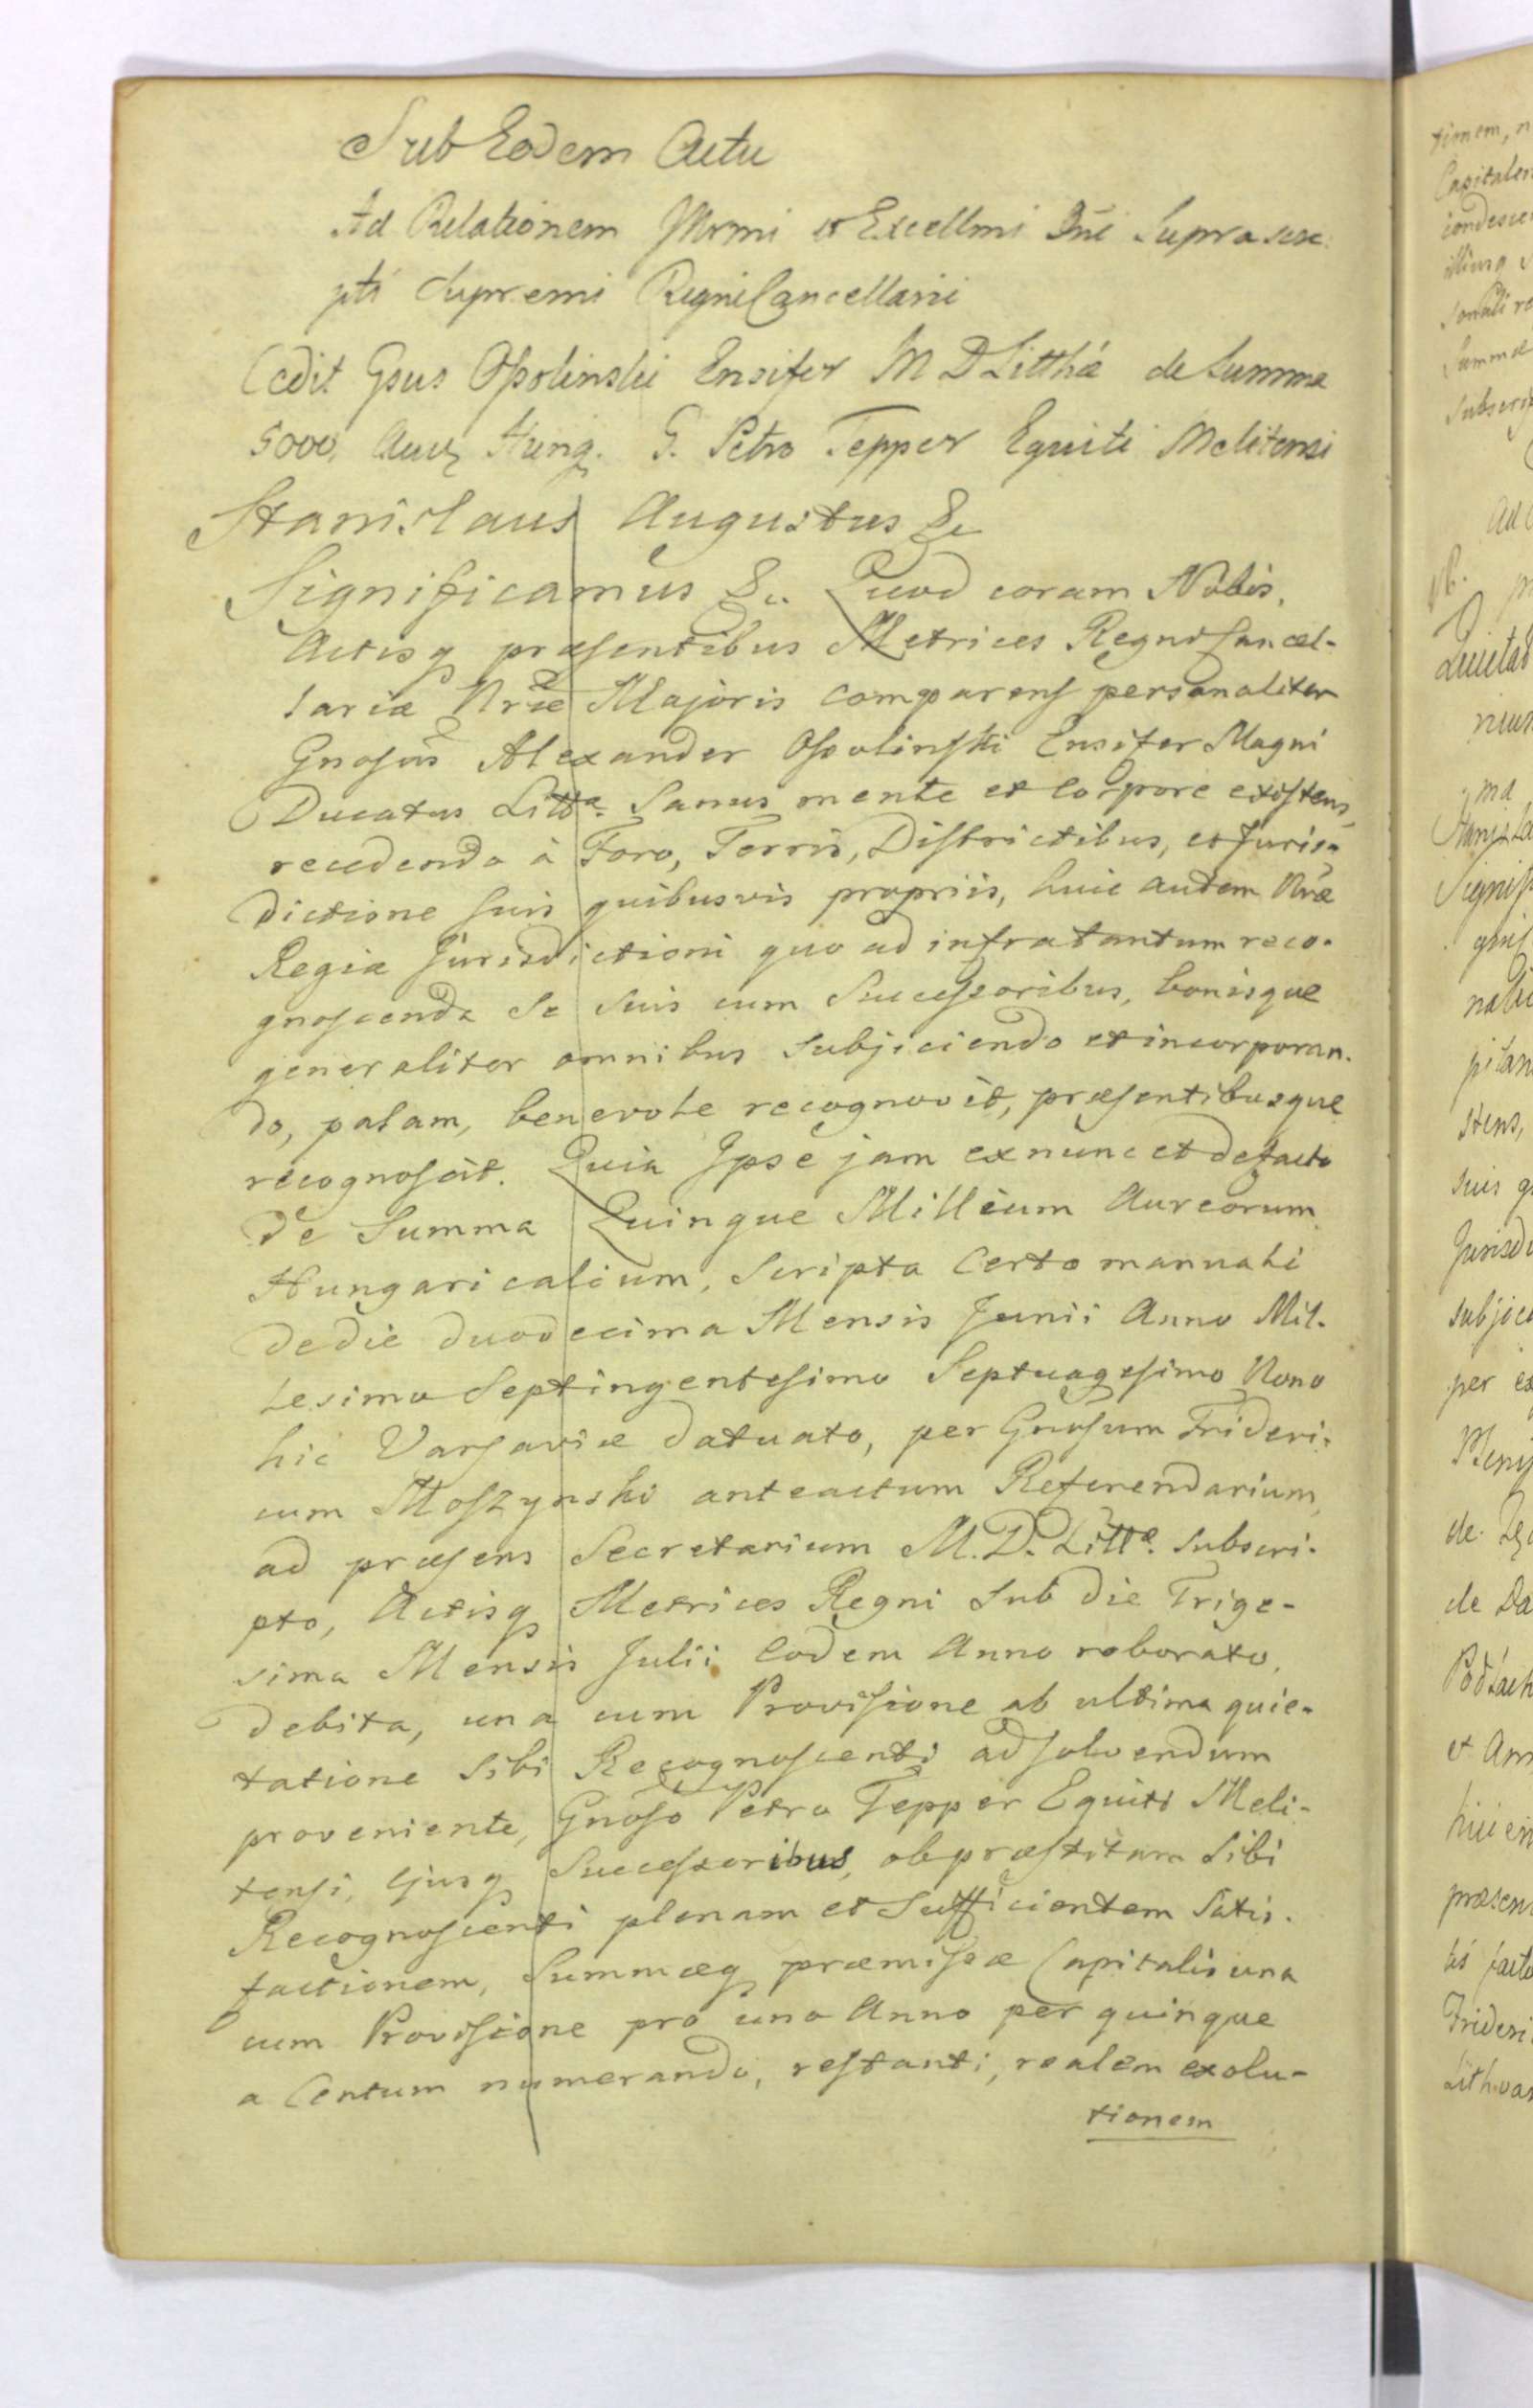 Sub Eodem Actu
Ad Relationem Illrmi et Excellmi Dni Suprascri
pti Supremi Regni Cancellarii
Cedit Gsus Opolinski Ensifer M D Litthã de Summa
5000, Aur Hung. G. Petro Tepper Equiti Melitensi
Stanislaus Augustus &c
Significamus &c. Quod coram Nobis,
Actisq præsentibus Metrices Regni Cancel-
lariæ Nræ Majoris comparens personaliter
Gnosus Alexander Opolinski Ensifer Magni
Ducatus Littæ. Sanus mente et Corpore existens,
recedendo à Foro, Terris, Districtibus, et Juris-
dictione suis quibusvis propriis, huic autem Nræ
Regiæ Jurisdictioni quo ad infra tantum reco-
gnoscenda se suis cum Successoribus, bonisque
generaliter omnibus subjiciendo et incorporan-
do, palam, benevole recognovit, præsentibusque
recognoscit. Quia Ipse jam ex nunc et de facto
De Summa Quinque Millium Aureorum
Hungaricalium, Scripto Certo mannali
de die duodecima Mensis Junii Anno Mil-
lesimo Septingentesimo Septuagesimo Nono
hic Varsaviæ datuato, per Gnosum Frideri-
cum Moszynski anteactum Referendarium,
ad præsens Secretarium M. D. Littæ. subscri-
pto, Actisq Metrices Regni sub die Trige-
sima Mensis Julii Eodem Anno roborato,
debita, una cum Provisione ab ultima quie-
tatione Sibi Recognoscenti ad solvendum
proveniente, Gnoso Petro Tepper Equiti Meli-
tensi, Ejusq Successoribus, ob præstitam Sibi
Recognoscenti plenam et Sufficientem Satis-
factionem, Summæq præmissæ Capitalis una
cum Provisione pro uno Anno per quinque
a Centum numerando, restanti, realem exolu-
tionem